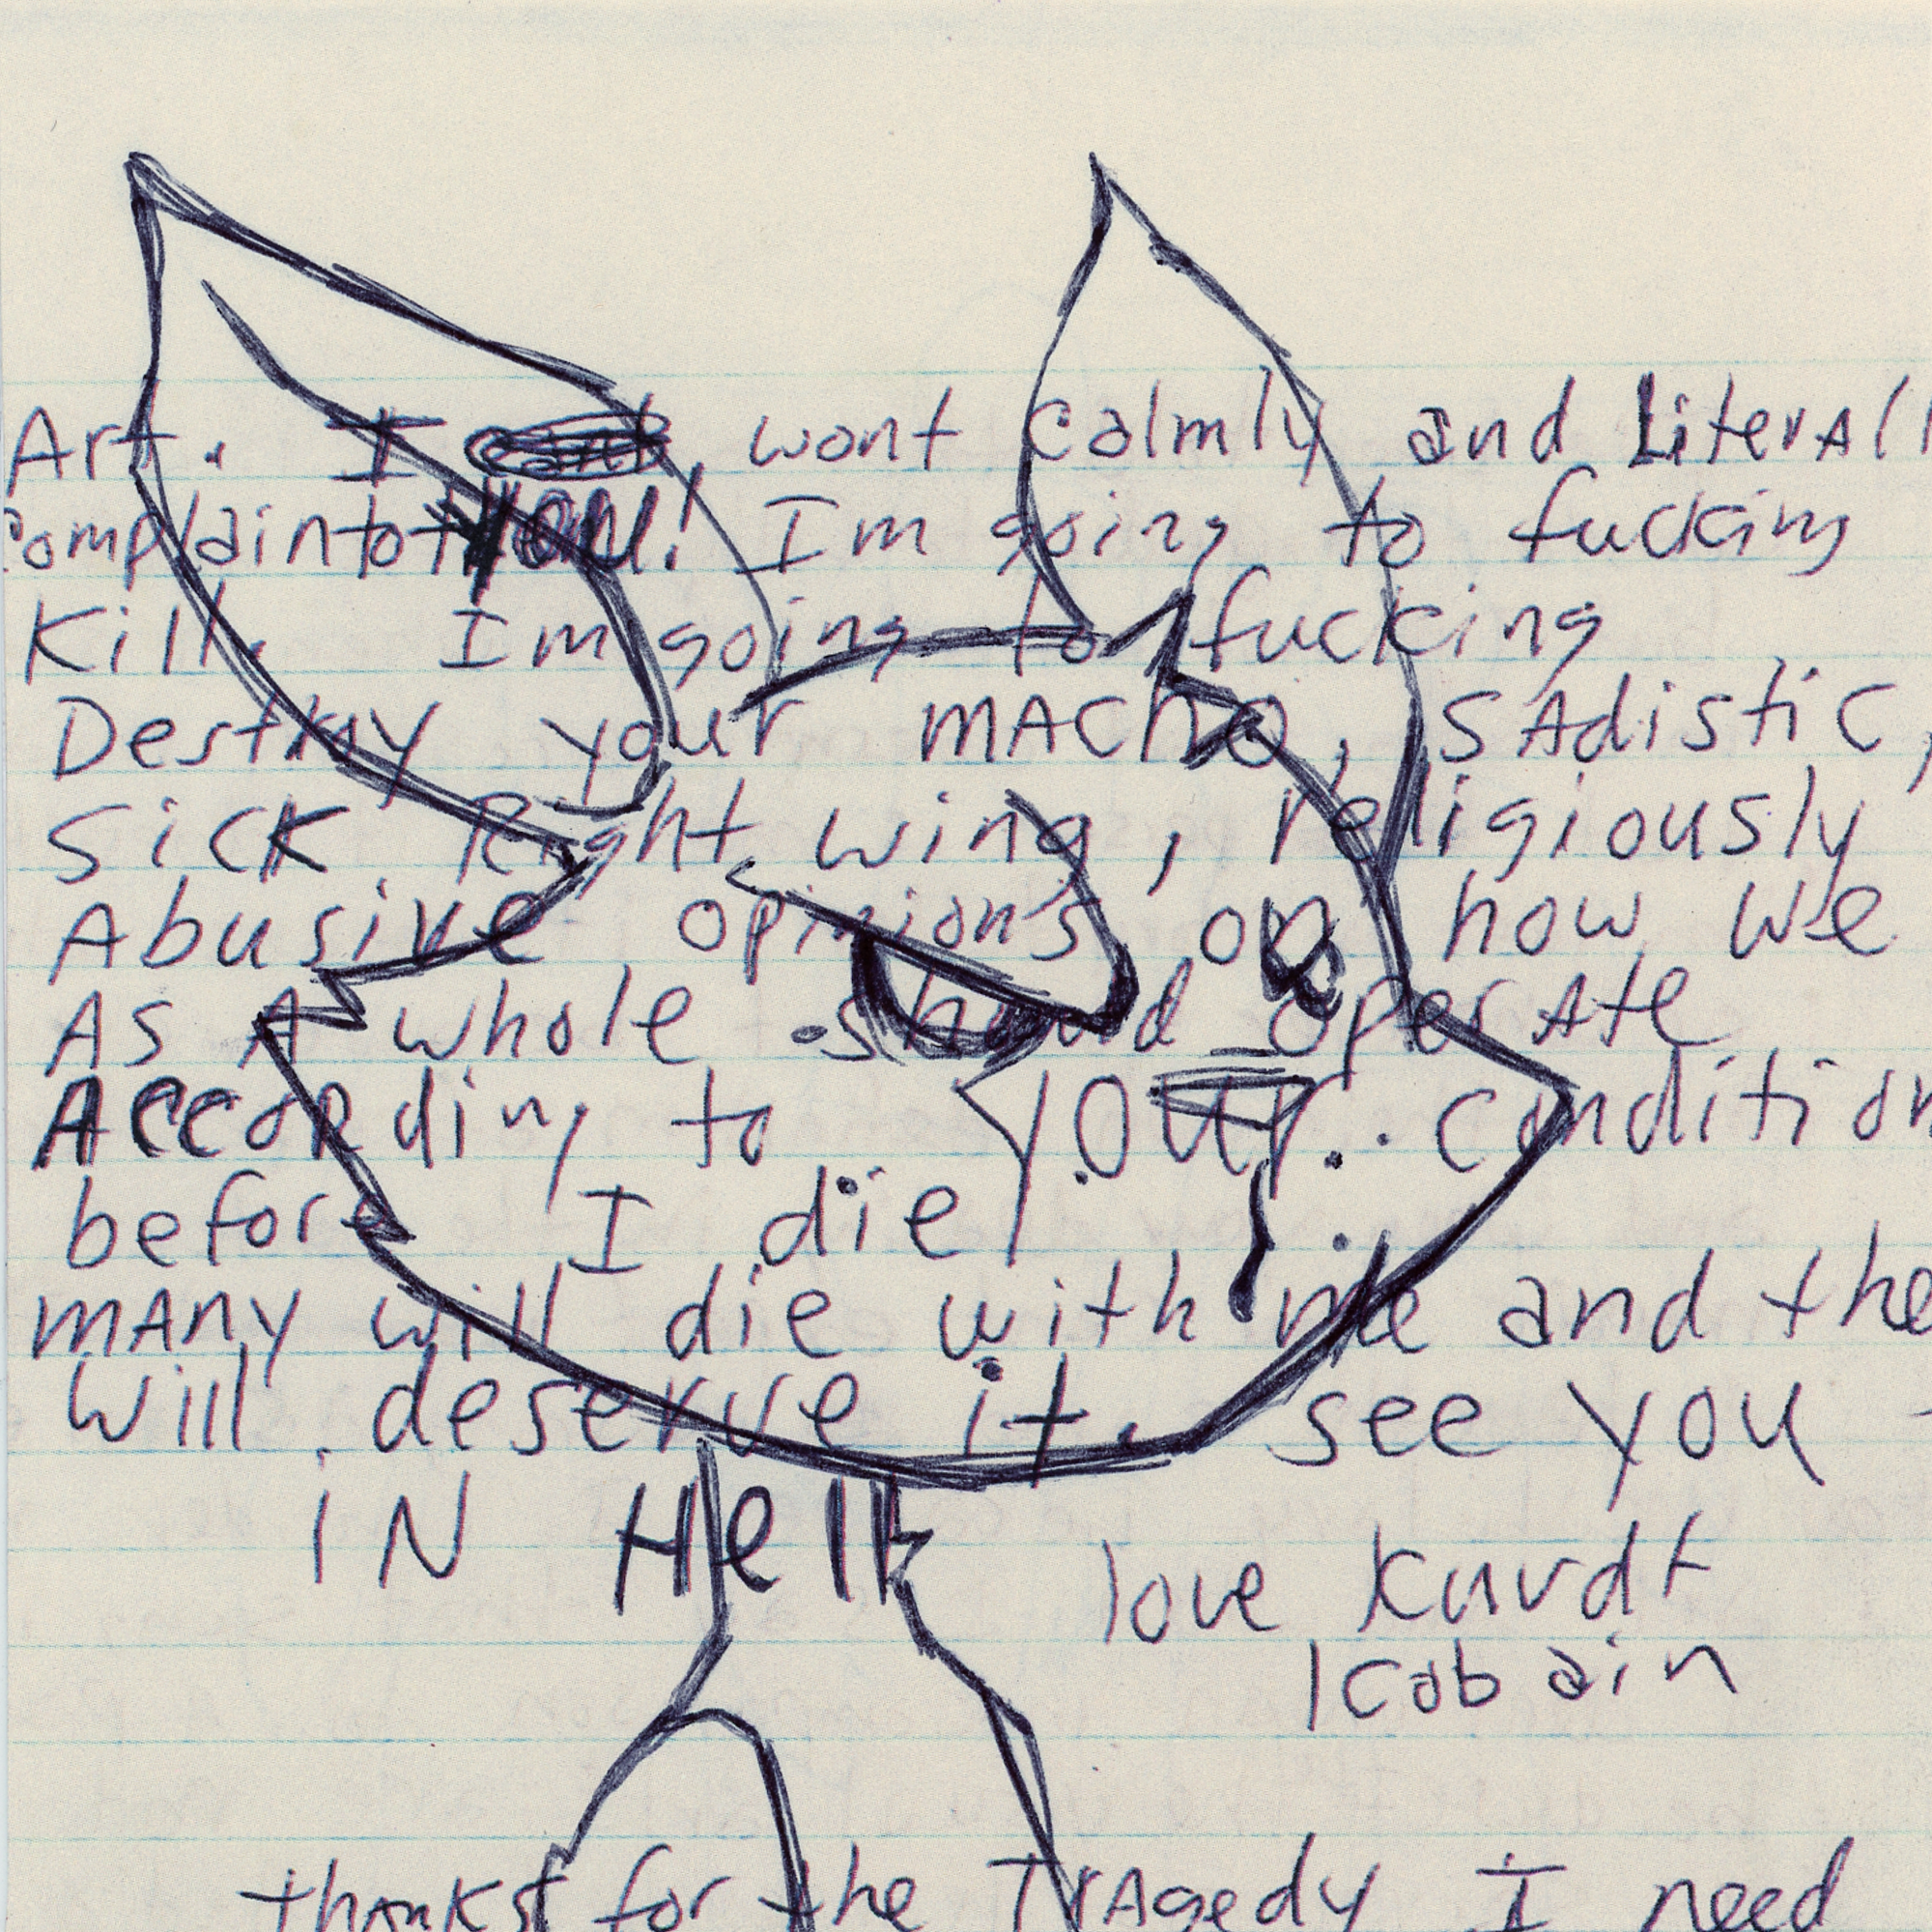 Art. I wont calmly and LiterAll
complain to YOU! Im going to fucking
Kill. Im going to fucking
Destroy your MAChO, SAdistiC,
SiCK Right wing, religiously
Abusive opinion's on how we
As A whole should operAte
According to YOUR. condition
before I die.
mANy will die with me and the
will deserve it. see you
iN Hell
love Kurdt
Kobain
thanks for the TrAgedy I need